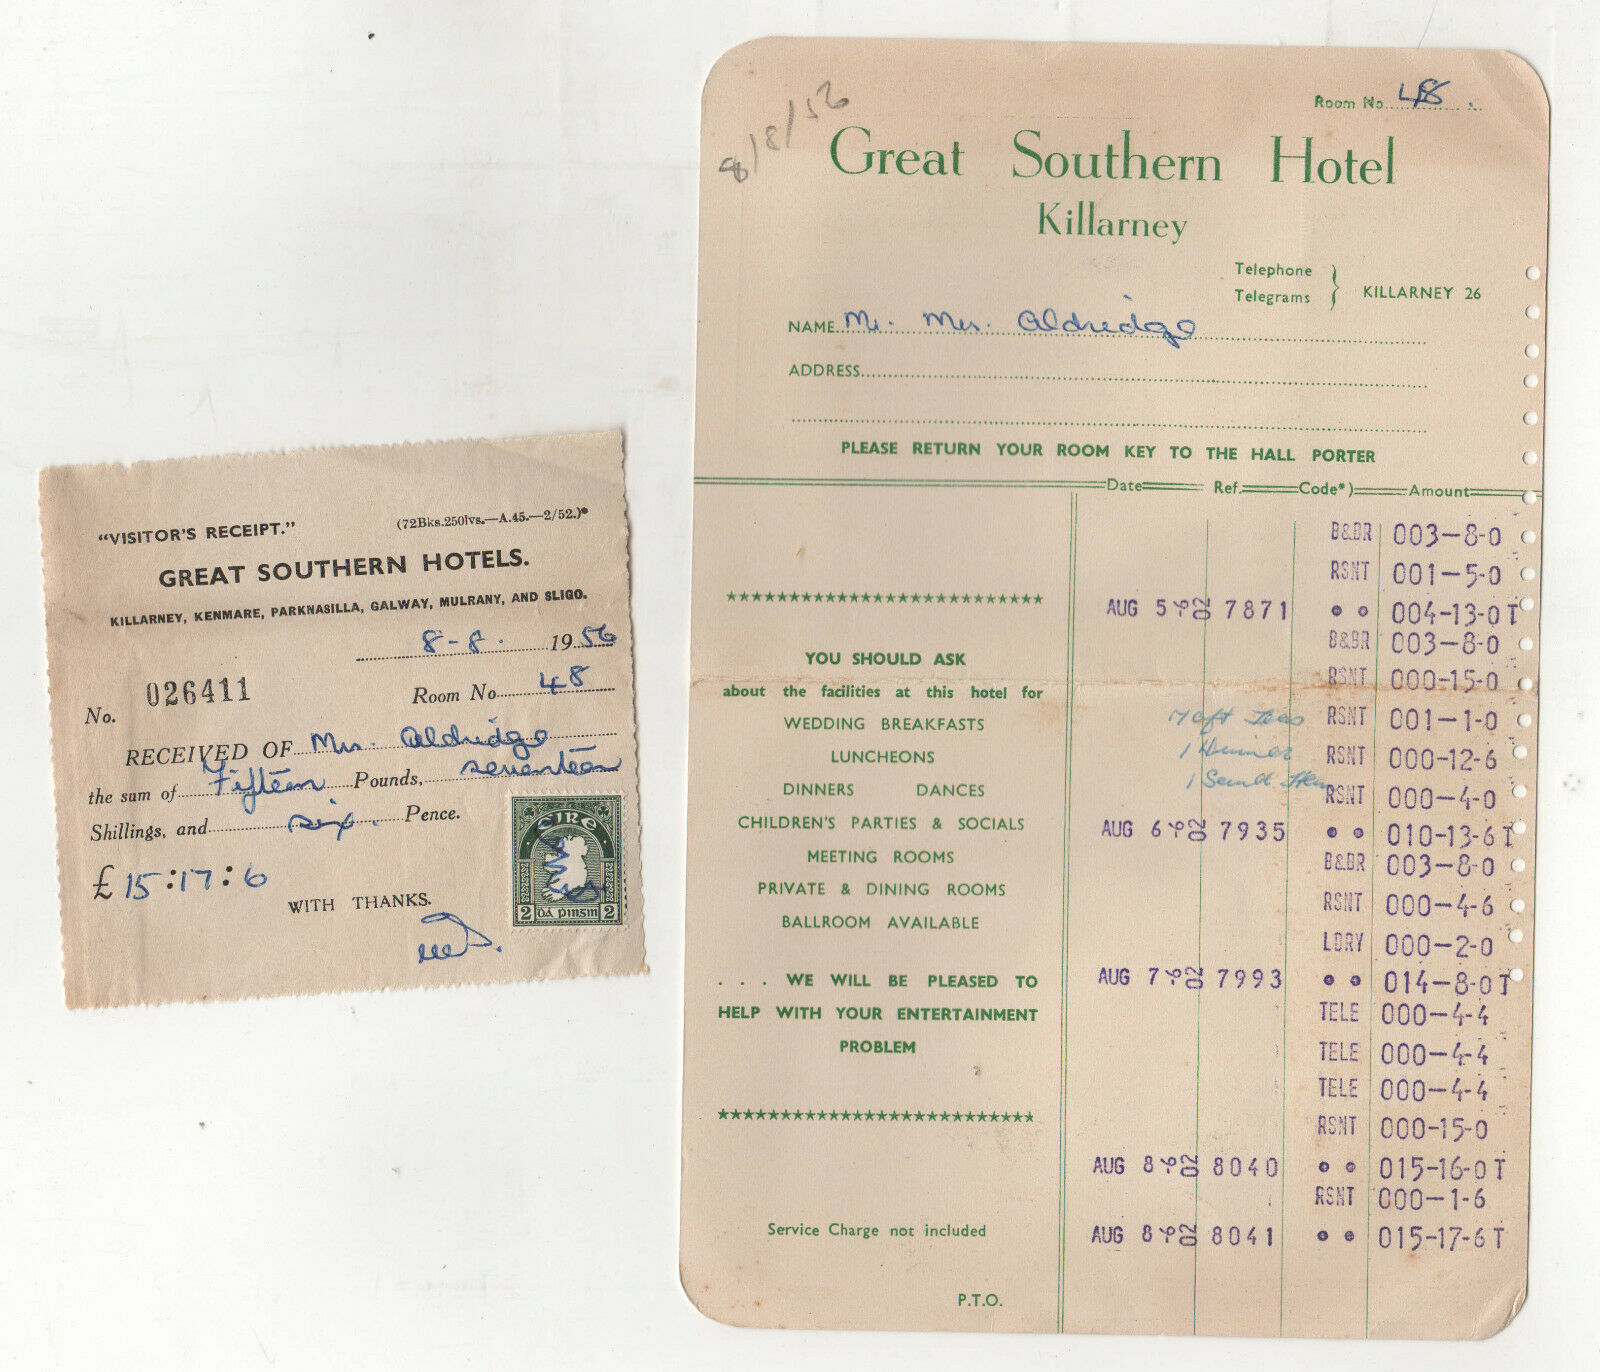 "VISITOR'S RECEIPT."
(72Bks.250lvs.—A.45.—2/52.)*
GREAT SOUTHERN HOTELS.
KILLARNEY, KENMARE, PARKNASILLA, GALWAY, MULRANY, AND SLIGO.
8-8. 1956
No. 026411 Room No 48
RECEIVED OF Mrs. Aldridge
the sum of Fifteen Pounds, seventeen
Shillings, and six. Pence.
£15:17:6
WITH THANKS.
EIRE
2 dá pinsin 2
8/8/56
Room No 48.
Great Southern Hotel
Killarney
Telephone
Telegrams } KILLARNEY 26
NAME Mr. Mrs. Aldridge
ADDRESS
PLEASE RETURN YOUR ROOM KEY TO THE HALL PORTER
Date Ref. Code*) Amount
B&BR 003-8-0
RSNT 001-5-0
AUG 5 7871 • • 004-13-0T
B&BR 003-8-0
RSNT 000-15-0
7 aft Teas RSNT 001-1-0
1 Dinner RSNT 000-12-6
1 RSNT 000-4-0
AUG 6 7935 • • 010-13-6T
B&BR 003-8-0
RSNT 000-4-6
LDRY 000-2-0
AUG 7 7993 • • 014-8-0T
TELE 000-4-4
TELE 000-4-4
TELE 000-4-4
RSNT 000-15-0
AUG 8 8040 • • 015-16-0T
RSNT 000-1-6
AUG 8 8041 • • 015-17-6T
★★★★★★★★★★★★★★★★★★★★★★★★★★
YOU SHOULD ASK
about the facilities at this hotel for
WEDDING BREAKFASTS
LUNCHEONS
DINNERS DANCES
CHILDREN'S PARTIES & SOCIALS
MEETING ROOMS
PRIVATE & DINING ROOMS
BALLROOM AVAILABLE
. . . WE WILL BE PLEASED TO
HELP WITH YOUR ENTERTAINMENT
PROBLEM
★★★★★★★★★★★★★★★★★★★★★★★★★★
Service Charge not included
P.T.O.